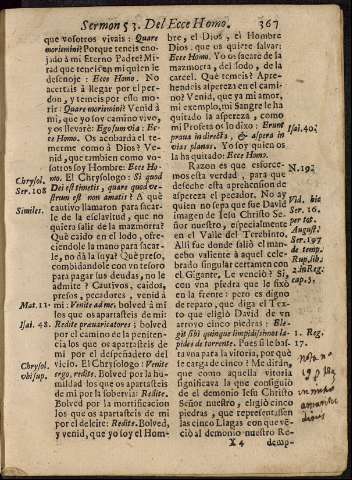 Sermon 53. Del Ecce Homo.
367
que vosotros vivais: Quare
moriemini? Porque teneis eno-
jado à mi Eterno Padre? Mi-
rad que teneis en mi quien le
desenoje: Ecce Homo. No
acertais à llegar por el per-
don, y teneis por esto mo-
rir: Quare moriemini? Venid à
mi, que yo soy camino vivo,
y os llevarè: Ego sum via: Ecce
Homo. Os acobarda el te-
merme como à Dios? Ve-
nid, que tambien como vo-
sotros soy Hombre: Ecce Ho-
mo. El Chrysologo: Si quod
Dei est timetis, quare quod ve-
strum est non amatis? A què
cautivo llamaron para sacar-
le de la esclavitud, que no
quiera salir de la mazmorra?
Què caìdo en el lodo, ofre-
ciendole la mano para sacar-
le, no dà la suya? Què preso,
combidandole con vn tesoro
para pagar sus deudas, no le
admite? Cautivos, caìdos,
presos, pecadores, venid à
mi: Venite ad me: bolved à mi
los que os apartasteis de mi:
Redite prævaricatores: bolved
por el camino de la peniten-
cia los que os apartasteis de
mi por el despeñadero del
vicio. El Chrysologo: Venite
ergo, redite. Bolved por la hu-
mildad los que os apartasteis
de mi por la sobervia: Redite.
Bolved por la mortificacion
los que os apartasteis de mi
por el deleite: Redite. Bolved,
y venid, que yo soy el Hom-
Chrysol.
Ser. 108
Similet.
Mat. 11.
Isai. 48.
Chrysol.
vbi sup.
bre, el Dios, el Hombre
Dios, que os quiere salvar:
Ecce Homo. Yo os sacarè de la
mazmorra, del lodo, de la
carcel. Què temeis? Apre-
hendeis aspereza en el cami-
no? Venid, que ya mi amor,
mi exemplo, mi Sangre le ha
quitado la aspereza, como
mi Profeta os lo dixo: Erunt
prava in directa, & aspera in
vias planas. Yo soy quien os
la ha quitado: Ecce Homo.
Razon es que esforce-
mos esta verdad, para que
deseche esta aprehension de
aspereza el pecador. No ay
quien no sepa que fue David
imagen de Jesu Christo Se-
ñor nuestro, especialmente
en el Valle del Terebinto.
Allì fue donde saliò el man-
cebo valiente à aquel cele-
brado singular certamen con
el Gigante, Le venciò? Si,
con vna piedra que le fixò
en la frente: pero es digno
de reparo, que diga el Tex-
to que eligiò David de vn
arroyo cinco piedras: Ele-
git sibi quinque limpidissimos la-
pides de torrente. Pues si le bas-
ta vna para la vitoria, por què
se carga de cinco? Me diràn,
que como aquella vitoria
significava la que consiguiò
de el demonio Jesu Christo
Señor nuestro, eligiò cinco
piedras, que representassen
las cinco Llagas con que ve-
ciò al demonio nuestro Re-
Isai. 40.
N. 19.
Vid. hic
Ser. 16.
per tot.
August.
Ser. 197
de temp.
Rup. lib.
2. in Reg.
cap. 5.
1. Reg.
17.
X 4
demp-